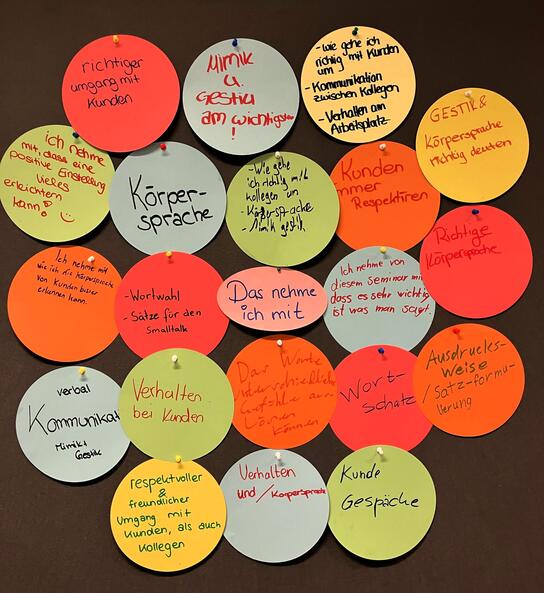 richtiger
umgang mit
Kunden
Mimik
u.
Gestik
am wichtigsten
!
- wie gehe ich
richtig mit Kunden
um
- Kommunikation
zwischen Kollegen
- Verhalten am
Arbeitsplatz
GESTIK &
Körpersprache
richtig deuten
ich nehme
mit, dass eine
positive Einstellung
vieles
erleichtern
kann! :)
Körper-
sprache
- Wie gehe
ich richtig mit
Kollegen um
- Körpersprache
- Mimik gestik
Kunden
immer
Respektieren
Richtige
Körpersprache
Ich nehme mit
wie ich die Körpersprache
von Kunden besser
erkennen kann.
- Wortwahl
- Sätze für den
Smalltalk
Das nehme
ich mit
Ich nehme von
diesem Seminar mit
dass es sehr wichtig
ist was man sagt.
verbal
Kommunikat
Mimik+
Gestik
Verhalten
bei Kunden
Das Worte
unterschiedliche
Gefühle aus-
lösen
können
Wort-
schatz
Ausdrucks-
weise
/Satz-formu-
lierung
respektvoller
&
freundlicher
Umgang mit
Kunden, als auch
Kollegen
Verhalten
und / Körpersprache
Kunde
Gespäche